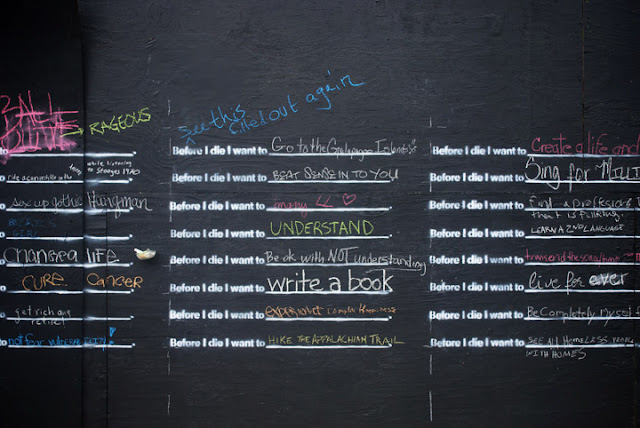 BALL
RAGEOUS
see this
filled out again
to
to
to Hangman
to
to Change a life
to CURE CANCER
to get rich and
retire!
to not for
Before I die I want to Go to the Galapagos Islands
Before I die I want to BEAT SENSE INTO YOU
Before I die I want to
Before I die I want to UNDERSTAND
Before I die I want to Be ok with NOT understanding
Before I die I want to write a book
Before I die I want to EXPERIENCE
Before I die I want to HIKE THE APPALACHIAN TRAIL
Before I die I want to Create a life and
Before I die I want to Sing for
Before I die I want to find a profession
that is fulfilling.
Before I die I want to LEARN A 2ND LANGUAGE
Before I die I want to transcend the
Before I die I want to live for ever
Before I die I want to Be Completely myself
Before I die I want to SEE ALL HOMELESS PEOPLE
WITH HOMES